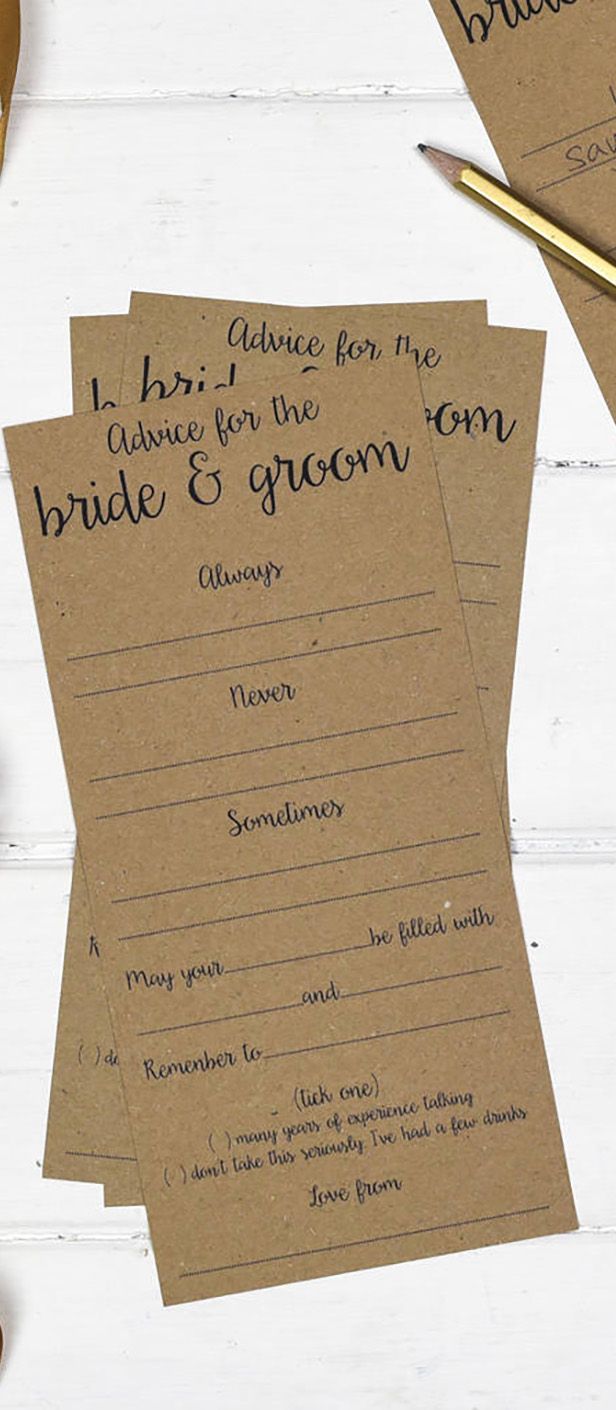 Advice for the
oom
Advice for the
bride & groom
Always
Never
Sometimes
May your be filled with
and
Remenber to
(tick one)
( ) many years of experience talking
( ) don't take this seriously I've had a few drinks
Love from